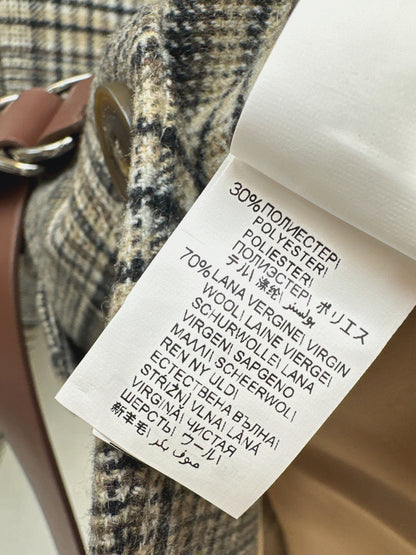 30%ПОЛИЕСТЕР\
POLYESTER\
POLIESTER\
ПОЛИЭСТЕР\
テル\ 涤纶\ بوليستر\ ポリエス
70% LANA VERGINE\ VIRGIN
WOOL\ LAINE VIERGE\
SCHURWOLLE\ LANA
VIRGEN\ SAPGENO
MAMMI\ SCHEERWOL\
REN NY ULD\
ЕСТЕСТВЕНА ВЪЛНА\
STRIŽNÍ VLNA\ LANA
VIRGINĂ\ ЧИСТАЯ
ШЕРСТЬ\ ウール\
新羊毛\ صوف بكر